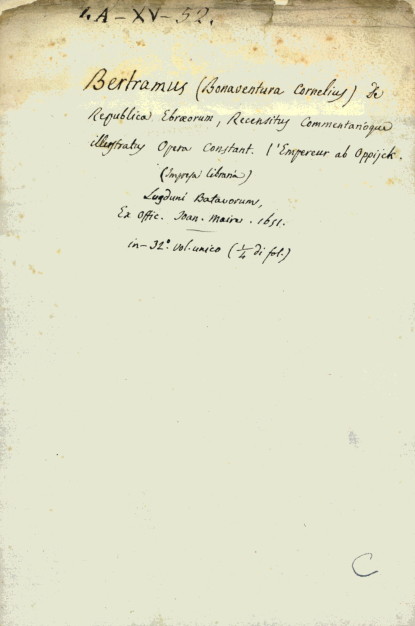 1. A-XV-52.
Bertramus (Bonaventura Cornelius) De
Republica Ebræorum, Recensitus Commentarioque
illustratus Opera Constant. l'Empereur ab Oppijck.
(Impresa libraria)
Lugduni Batavorum,
Ex Offic. Ioan. Maire. 1651.
in-32.° vol. unico (1/4 di fol.)
C